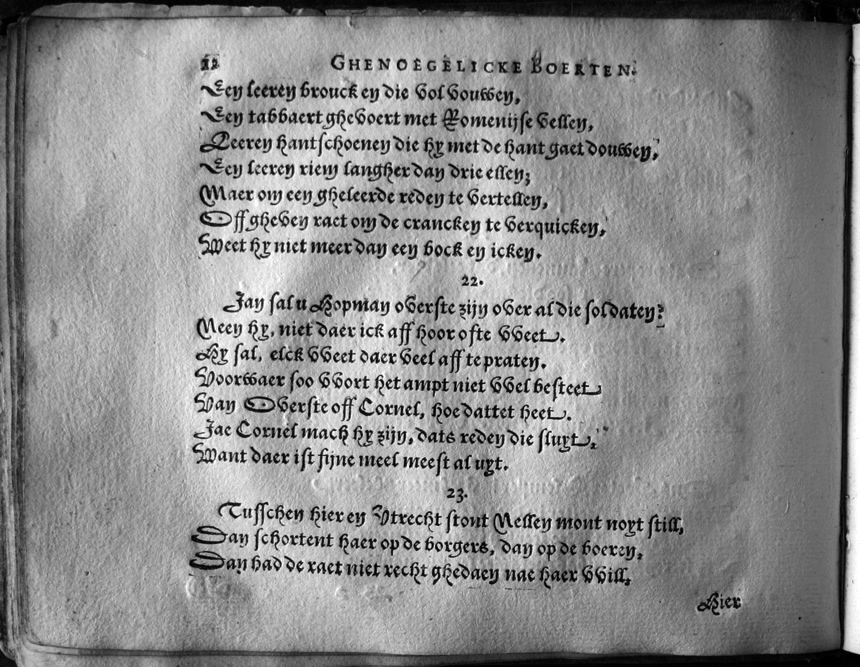 12 GHENOEGELICKE BOERTEN.
Een leeren brouck en die vol vouwen,
Een tabbaert ghevoert met Romenijse vellen,
Leeren hantschoenen die hy met de hant gaet douwen,
Een leeren riem langher dan drie ellen;
Maer om een gheleerde reden te vertellen,
Off gheven raet om de crancken te verquicken,
Weet hy niet meer dan een bock en icken.
22.
Jan sal u Hopman overste zijn over al die soldaten?
Neen hy, niet daer ick aff hoor ofte vveet.
Hy sal, elck vveet daer veel aff te praten.
Voorwaer soo vvort het ampt niet vvel besteet
Van Overste off Cornel, hoe dattet heet.
Jae Cornel mach hy zijn, dats reden die sluyt,
Want daer ist fijne meel meest al uyt.
23.
Tusschen hier en Vtrecht stont Nellen mont noyt still,
Dan schortent haer op de borgers, dan op de boeren,
Dan had de raet niet recht ghedaen nae haer vvill,
Hier